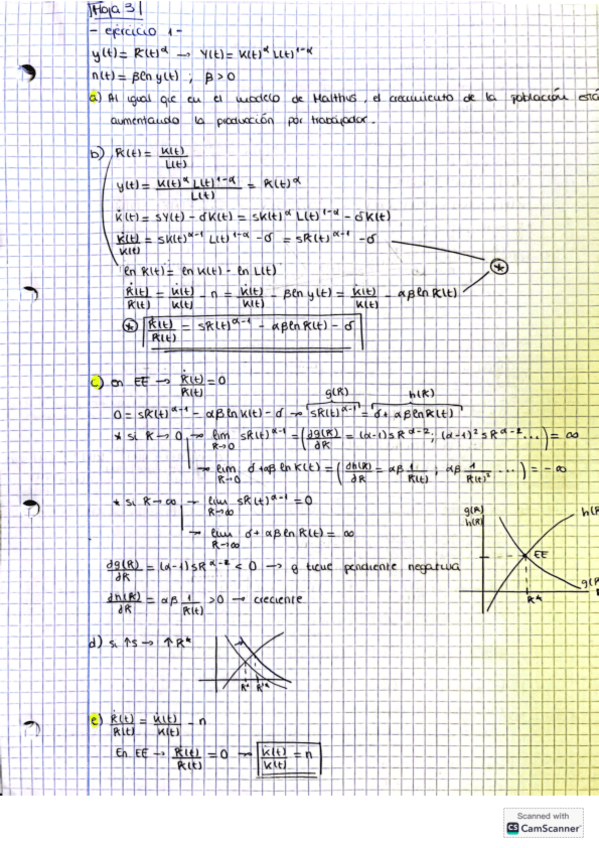 Hoja 3
- ejercicio 1 -
y(t) = k(t)^α → Y(t) = K(t)^α L(t)^1-α
n(t) = βln y(t) ; β > 0
a) Al igual que en el modelo de Malthus, el crecimiento de la población está
aumentando la producción por trabajador.
b) k(t) = K(t)/L(t)
y(t) = K(t)^α L(t)^1-α / L(t) = k(t)^α
K̇(t) = sY(t) - δK(t) = sK(t)^α L(t)^1-α - δK(t)
K̇(t)/K(t) = sK(t)^α-1 L(t)^1-α - δ = sk(t)^α-1 - δ
ln k(t) = ln K(t) - ln L(t)
k̇(t)/k(t) = K̇(t)/K(t) - n = K̇(t)/K(t) - βln y(t) = K̇(t)/K(t) - αβln k(t)
* k̇(t)/k(t) = sk(t)^α-1 - αβln k(t) - δ
*
c) en EE → k̇(t)/k(t) = 0
g(k) h(k)
0 = sk(t)^α-1 - αβln k(t) - δ → sk(t)^α-1 = δ + αβln k(t)
* si k → 0 → lim k→0 sk(t)^α-1 = (dg(k)/dk = (α-1)sk^α-2 ; (α-1)² sk^α-2 ...) = ∞
→ lim k→0 δ+αβ ln k(t) = (dh(k)/dk = αβ 1/k(t) ; αβ 1/k(t)² ...) = -∞
* si k → ∞ → lim k→∞ sk(t)^α-1 = 0
→ lim k→∞ δ + αβln k(t) = ∞
g(k)
h(k)
h(k)
EE
g(k)
k*
dg(k)/dk = (α-1)sk^α-2 < 0 → g tiene pendiente negativa
dh(k)/dk = αβ 1/k(t) > 0 → creciente
d) si ↑s → ↑k*
k* k'*
e) k̇(t)/k(t) = K̇(t)/K(t) - n
En EE → k̇(t)/k(t) = 0 → K̇(t)/K(t) = n
Scanned with
CS CamScanner